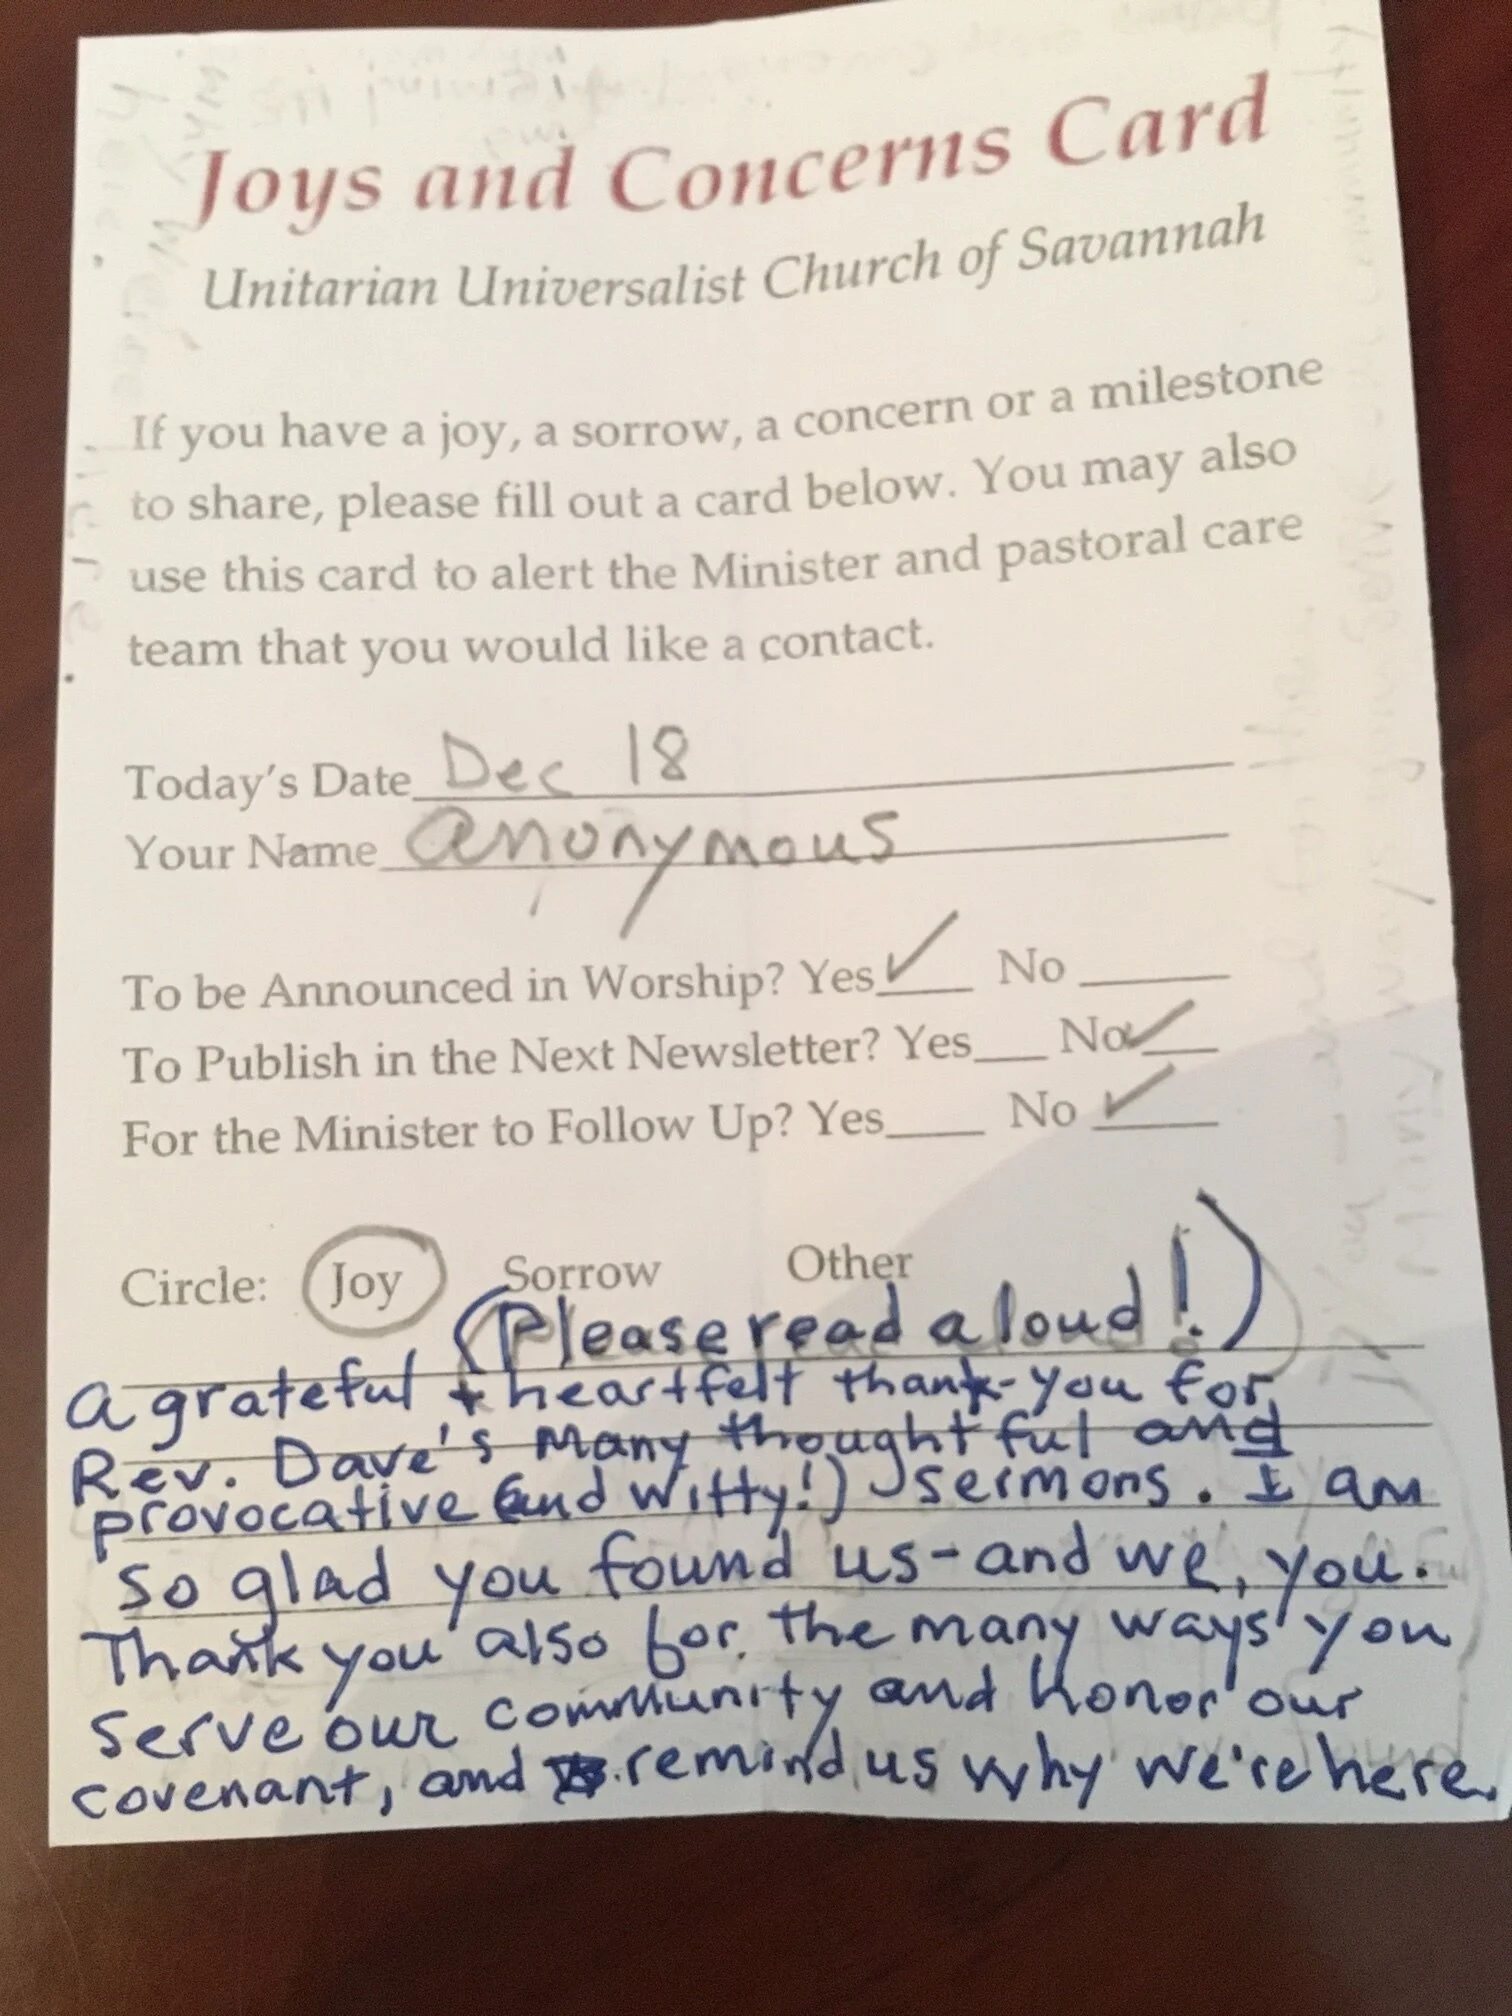 Joys and Concerns Card
Unitarian Universalist Church of Savannah
If you have a joy, a sorrow, a concern or a milestone
to share, please fill out a card below. You may also
use this card to alert the Minister and pastoral care
team that you would like a contact.
Today's Date Dec 18
Your Name anonymous
To be Announced in Worship? Yes ✓ No
To Publish in the Next Newsletter? Yes No ✓
For the Minister to Follow Up? Yes No ✓
Circle: Joy Sorrow Other
(Please read aloud!)
A grateful + heartfelt thank-you for
Rev. Dave's many thoughtful and
provocative (and witty!) sermons. I am
so glad you found us - and we, you.
Thank you also for the many ways you
serve our community and honor our
covenant, and remind us why we're here.